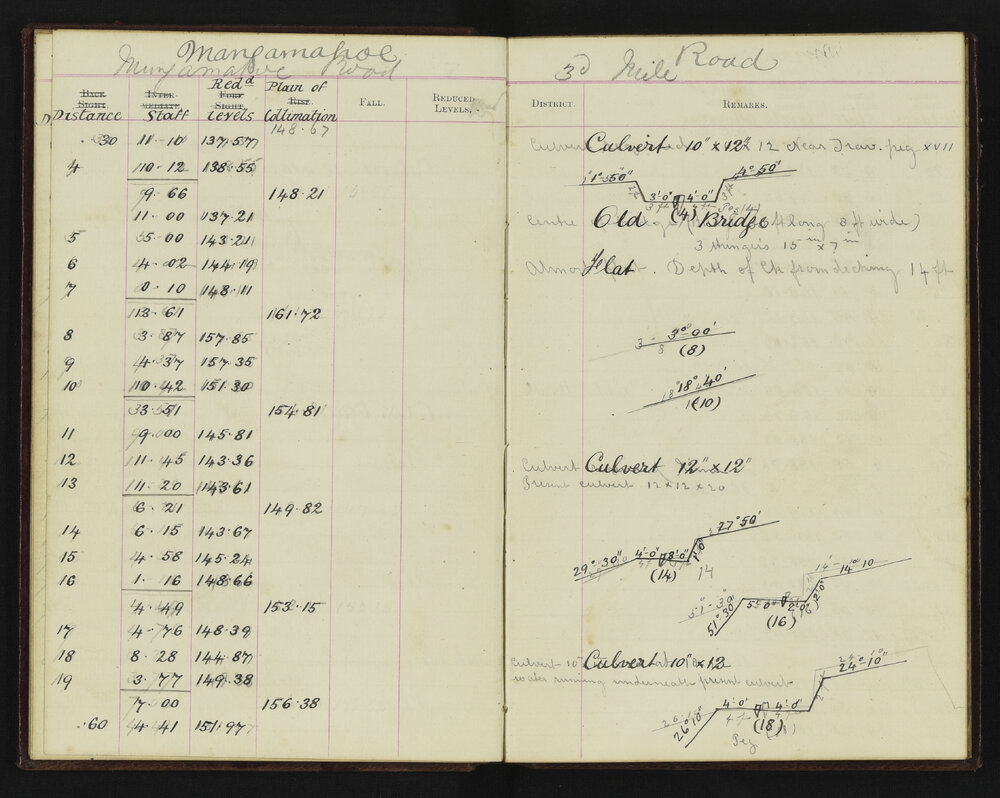 Mangamahoe
Mangamahoe Road
Back Sight. Inter- mediate Fore Sight. Rise. Fall. Reduced Levels.
Distance Staff Redd levels Plain of Collimation
148.67
.30 11.10 137.57
4 10.12 138.55
9.66 148.21
11.00 137.21
5 5.00 143.21
6 4.02 144.19
7 0.10 148.11
13.61 161.72
8 3.87 157.85
9 4.37 157.35
10 10.42 151.30
3.51 154.81
11 9.00 145.81
12 11.45 143.36
13 11.20 143.61
6.21 149.82
14 6.15 143.67
15 4.58 145.24
16 1.16 148.66
4.49 153.15
17 4.76 148.39
18 8.28 144.87
19 3.77 149.38
7.00 156.38
.60 4.41 151.97
3d Mile Road
District. Remarks.
Culvert 10" x 12" 12 Near Trav. peg XVII
1°50" 4°50'
3'.0" 4'.0"
(4)
Centre Old Bridge long 8 ft wide)
3 stringers 15 in x 7 in
Almost flat. Depth of Ck from decking 14 ft
3°00'
(8)
18°40'
(10)
Culvert 12" x 12"
Present culvert 12 x 12 x 20
27°50'
29°30" 4'.0" 3'.0" 2'.0"
(14) 14
14°10
51°30 5'.0" 2'.0" 2'.0"
(16)
Culvert 10" x 12
water running underneath present culvert
24°10"
26°10" 4'.0" 4'.0"
(18)
Peg